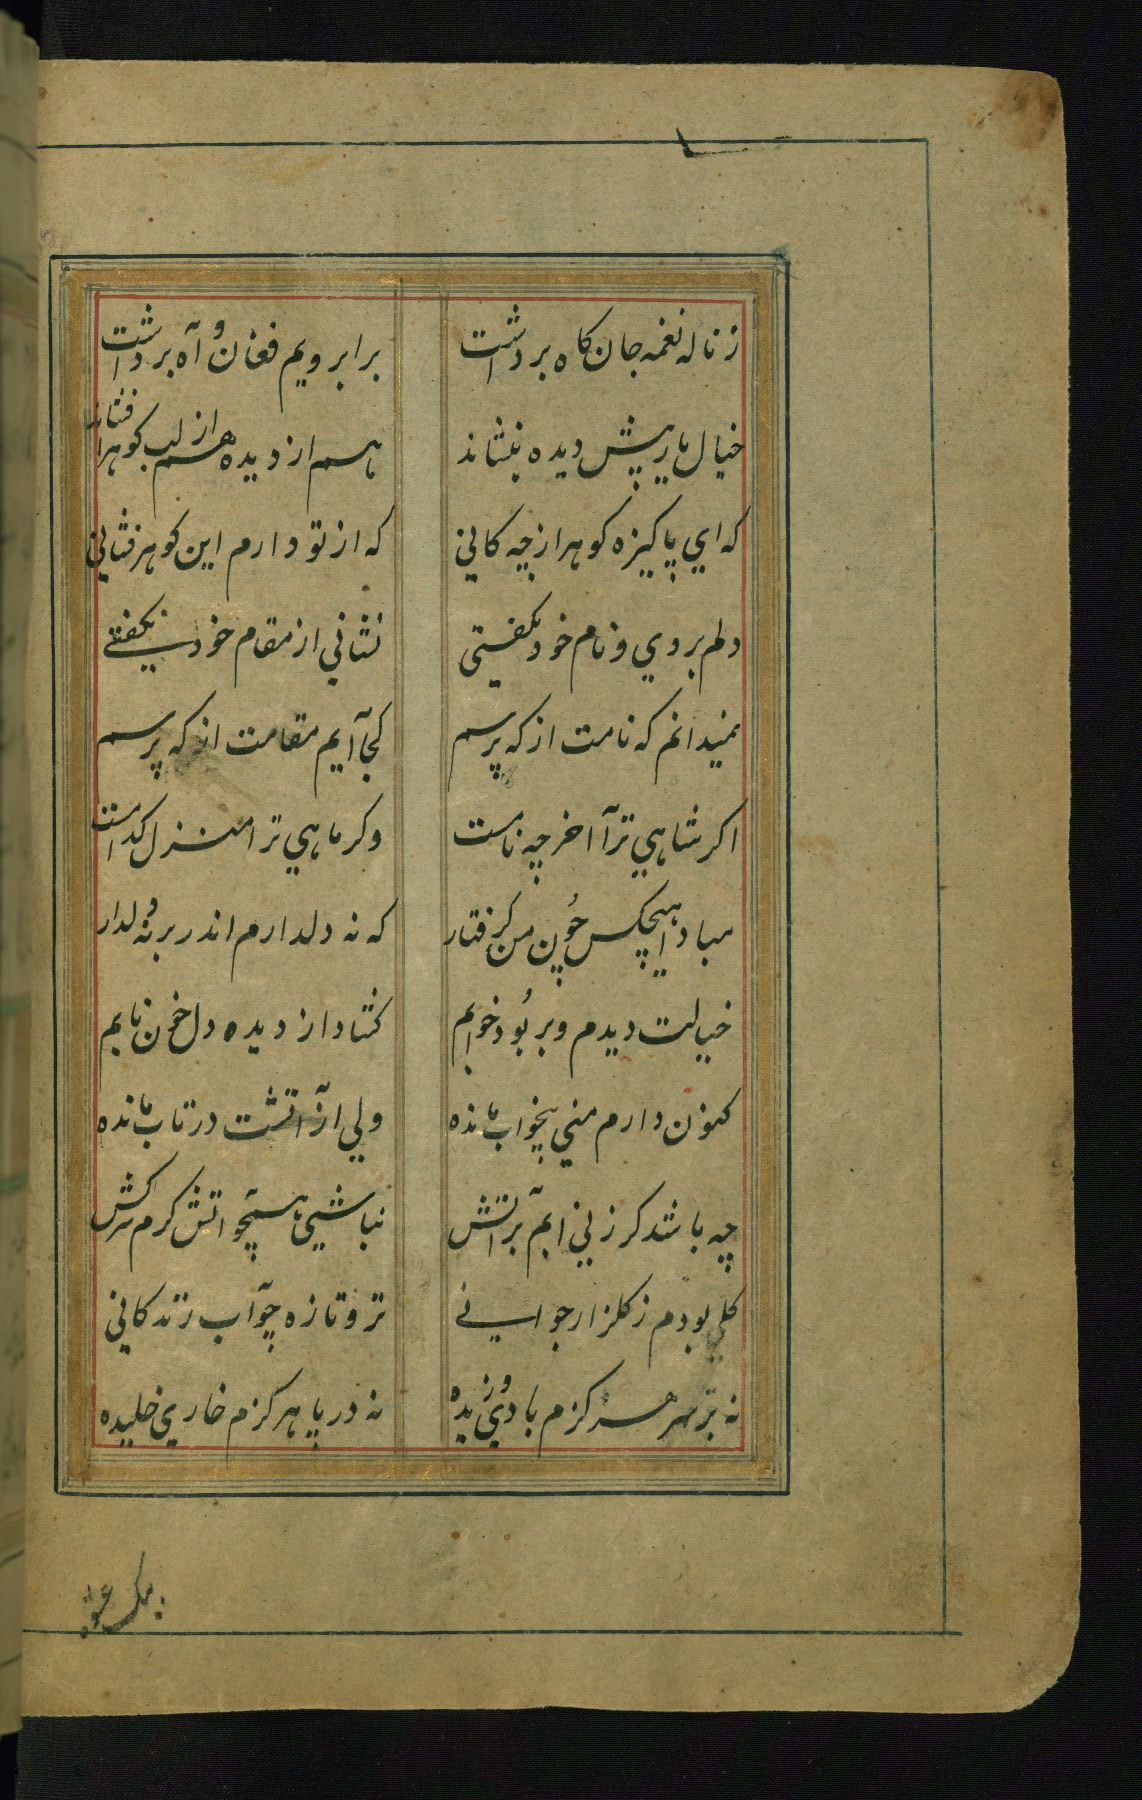 ز ناله نغمه جان کاه برداشت برابر ویم فغان و آه برداشت
خیال یار پیش دیده بنشاند هم از دیده هم از لب کوهر افشاند
که ای پاکیزه کوهر از چه کانی که از تو دارم این کوهر فشانی
دلم بردی و نام خود نکفتی نشانی از مقام خود نکفتی
نمیدانم که نامت از که پرسم کجا آیم مقامت از که پرسم
اکر شاهی ترا آخر چه نامست وکر ماهی ترا منزل کدامست
مبادا هیچکس چون من کرفتار که نه دل دارم اندر بر نه دلدار
خیالت دیدم و بربود خوابم کشاد از دیده دل خون نابم
کنون دارم منی بیخواب مانده ولی از آتشت در تاب مانده
چه باشد کر زنی آبم بر آتش نباشی همچو آتش کرم سرکش
کلی بودم ز کلزار جوانی تر و تازه چو آب زندکانی
نه بر سر هرکزم بادی وزیده نه در پا هرکزم خاری خلیده
بیک عشوه